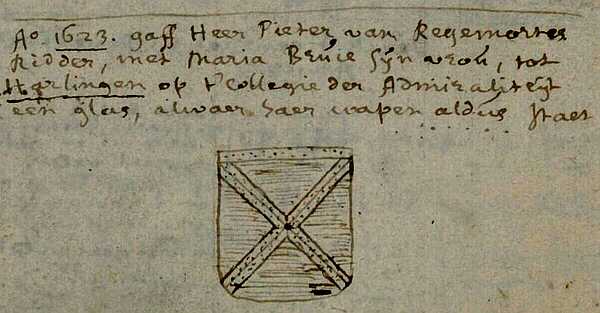 Ao 1623. gaff Heer Pieter van Regemortes
Ridder, met Maria Bruce sijn vrou, tot
Harlingen op t'Collegie der Admiraliteyt
een glas, alwaer haer wapen aldus staet